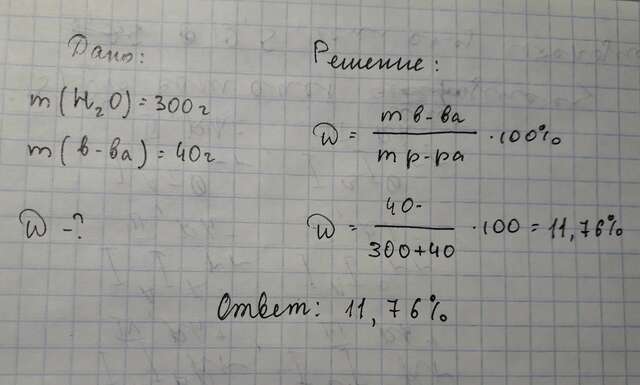 Дано:
m(H₂O)=300г
m(в-ва)=40г
W-?
Решение:
W = m в-ва / m р-ра · 100%
W = 40 / 300+40 · 100 = 11,76%
Ответ: 11,76%